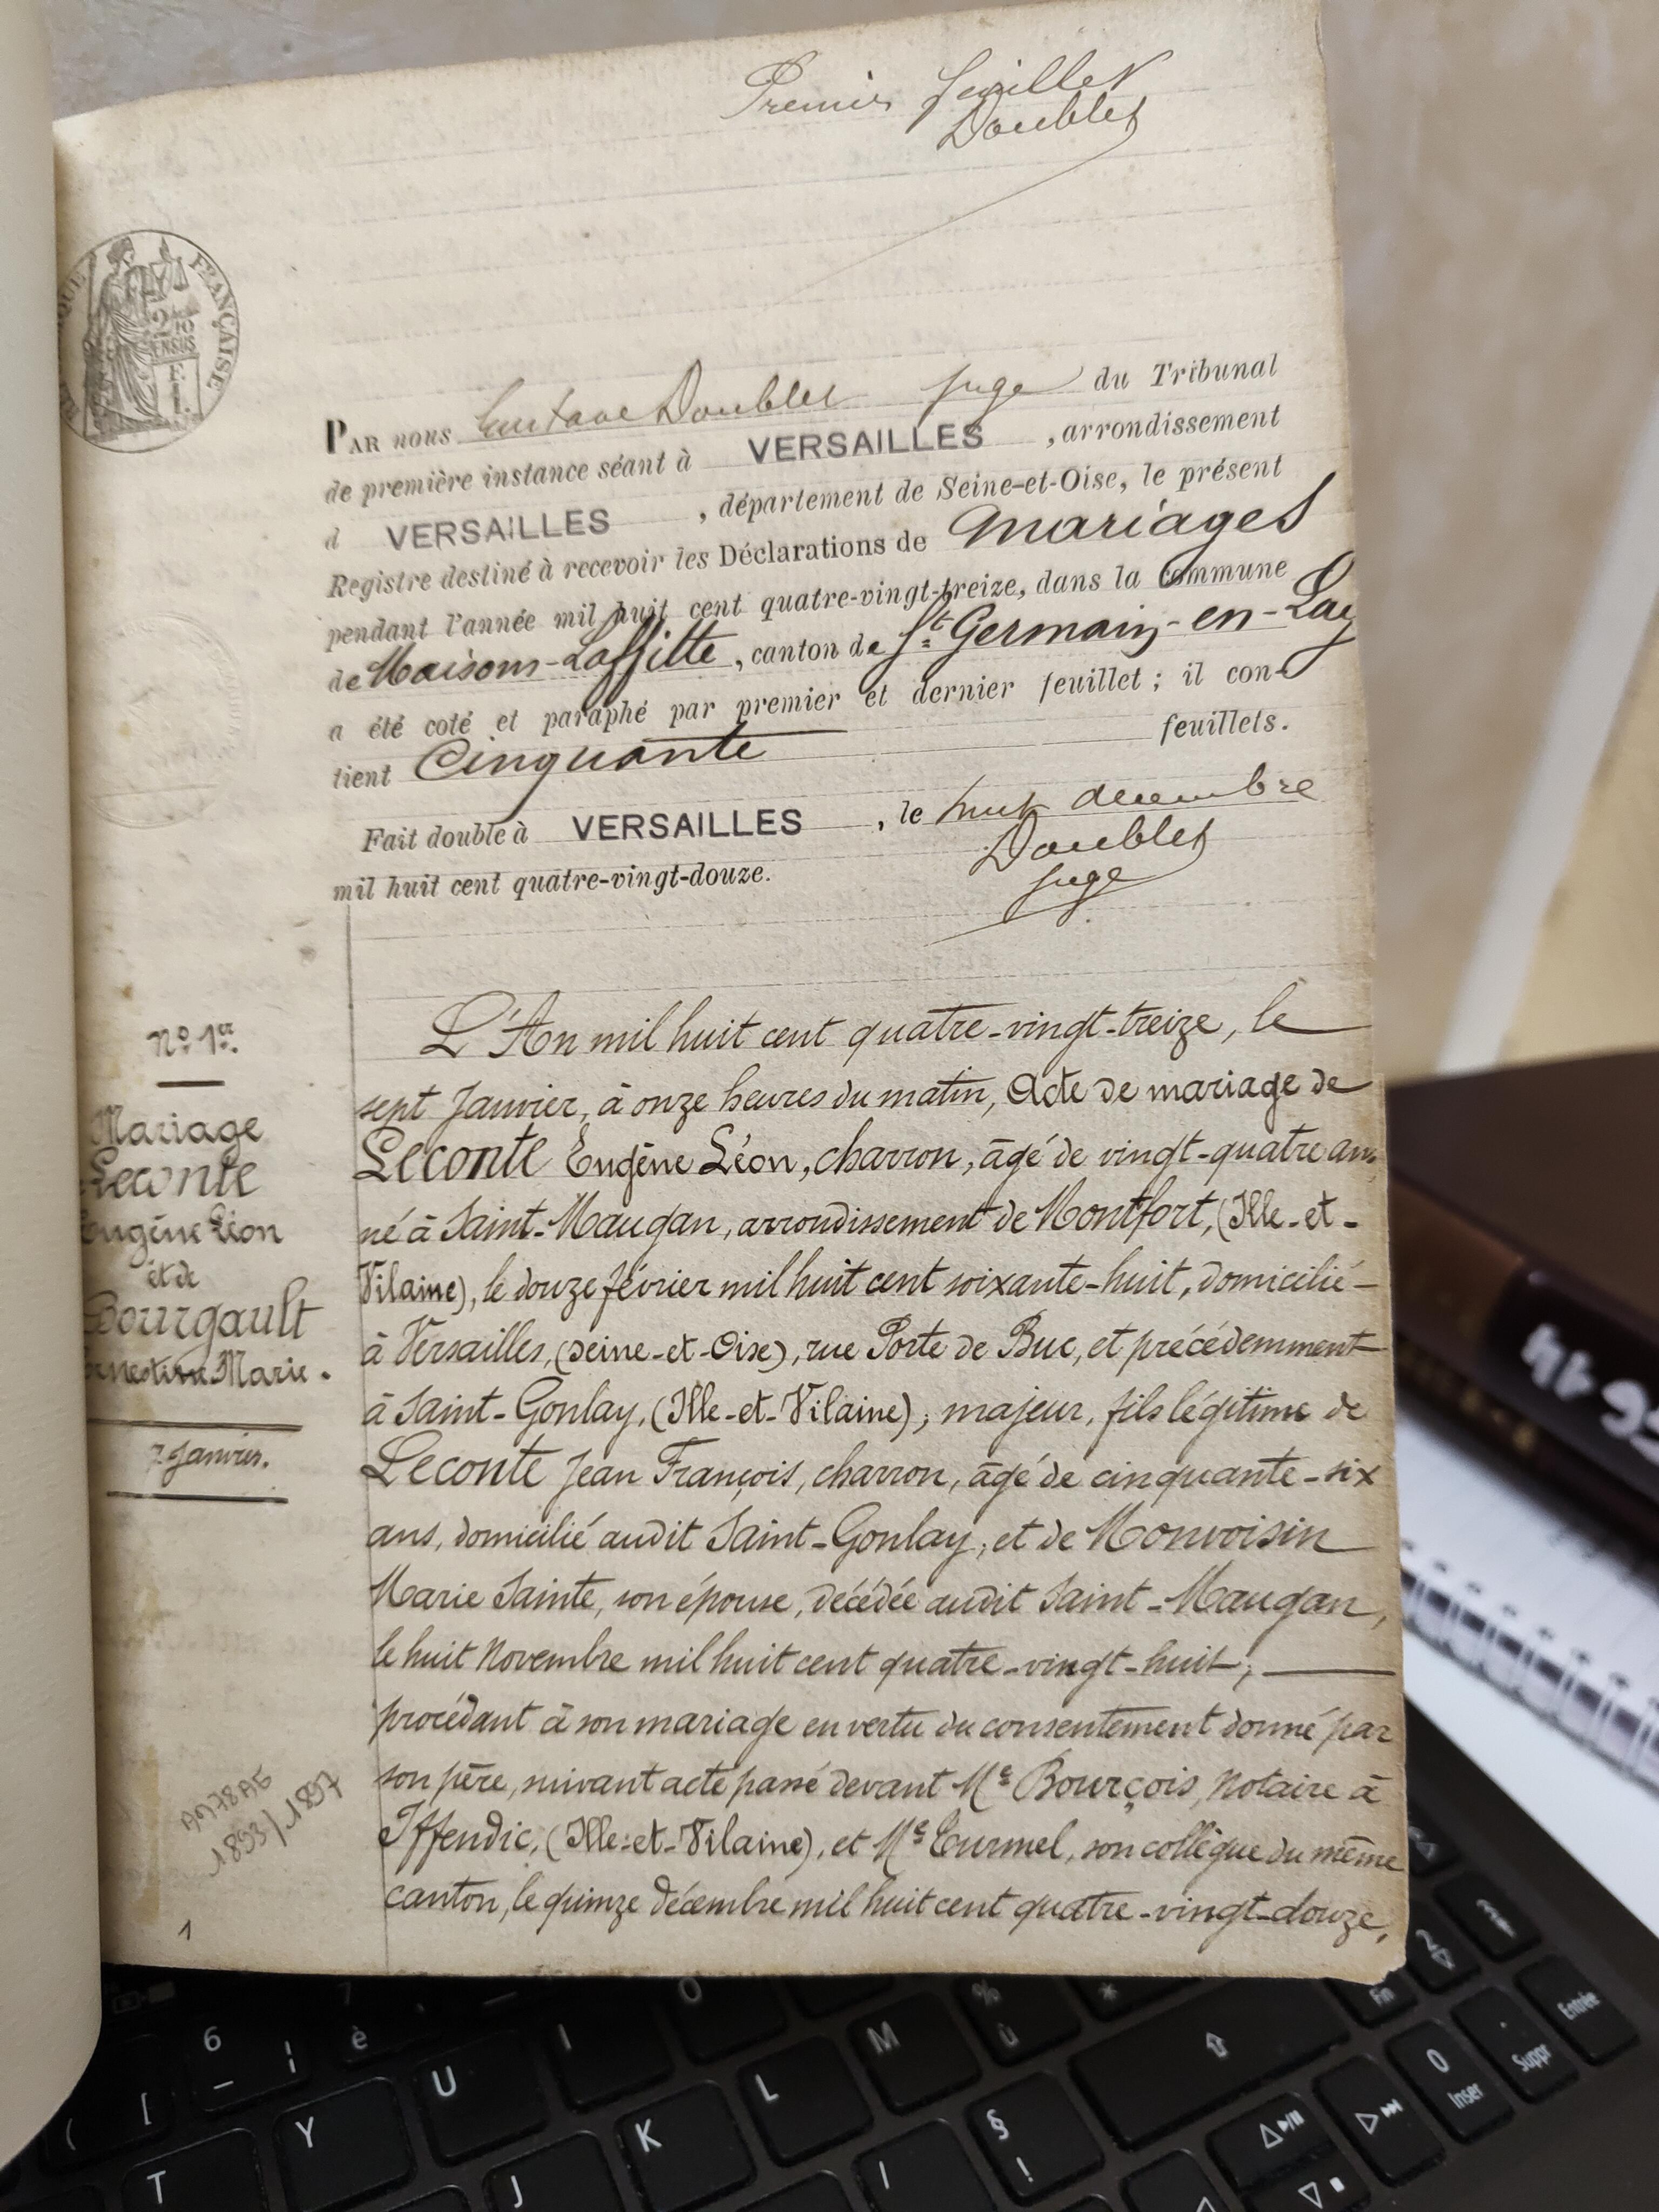 Premier feuillet
Doublet
RÉPUBLIQUE FRANÇAISE
2
PAR nous Gustave Doublet juge du Tribunal
de première instance séant à VERSAILLES , arrondissement
d VERSAILLES , département de Seine-et-Oise, le présent
Registre destiné à recevoir les Déclarations de Mariages
pendant l'année mil huit cent quatre-vingt-treize, dans la commune
de Maisons-Laffitte, canton de St Germain-en-Lay
a été coté et paraphé par premier et dernier feuillet ; il con-
tient Cinquante feuillets.
Fait double à VERSAILLES , le huit décembre
mil huit cent quatre-vingt-douze.
Doublet
juge
No 1er.
Mariage
Leconte
Eugène Léon
et de
Bourgault
Ernestine Marie.
7 Janvier.
L'An mil huit cent quatre-vingt-treize, le
sept Janvier, à onze heures du matin, Acte de mariage de
Leconte Eugène Léon, charron, âgé de vingt-quatre ans,
né à Saint-Maugan, arrondissement de Montfort, (Ille-et-
Vilaine), le douze février mil huit cent soixante-huit, domicilié
à Versailles, (Seine-et-Oise), rue Porte de Buc, et précédemment
à Saint-Gonlay, (Ille-et-Vilaine), majeur, fils légitime de
Leconte Jean François, charron, âgé de cinquante-six
ans, domicilié audit Saint-Gonlay, et de Monvoisin
Marie Sainte, son épouse, décédée audit Saint-Maugan,
le huit Novembre mil huit cent quatre-vingt-huit,
procédant à son mariage en vertu du consentement donné par
son père, suivant acte passé devant Me Bourçois, Notaire à
Iffendic, (Ille-et-Vilaine), et Me Turmel, son collègue du même
canton, le quinze décembre mil huit cent quatre-vingt-douze,
1893/1897
1
6
è
O
%
ù
*
M
U
I
Y
L
K
T
J
§
!
Fn
Entrée
Suppr
0
Inser